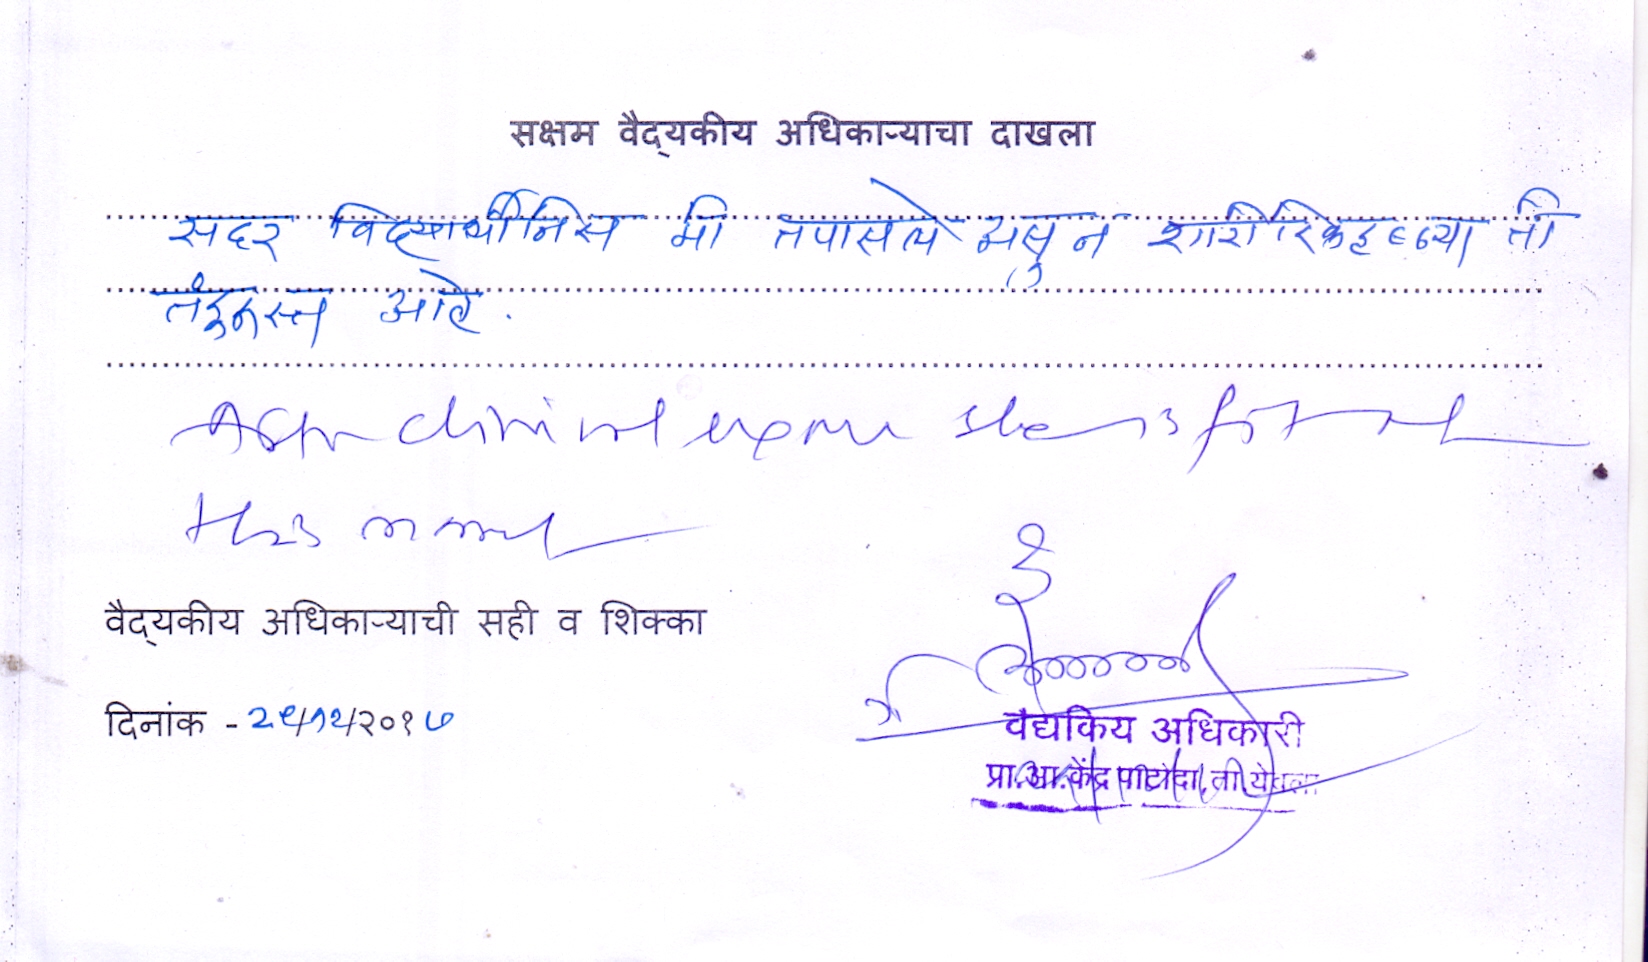 सक्षम वैद्यकीय अधिकाऱ्याचा दाखला
सदर विद्यार्थीनिस मी तपासले असुन शारीरिकदृष्ट्या ती
तंदुरुस्त आहे.
After clinical she is fit
this
वैद्यकीय अधिकाऱ्याची सही व शिक्का
दिनांक - २९/१२/२०१७
वैद्यकिय अधिकारी
प्रा.आ.केंद्र पाटोदा, ता.येवला